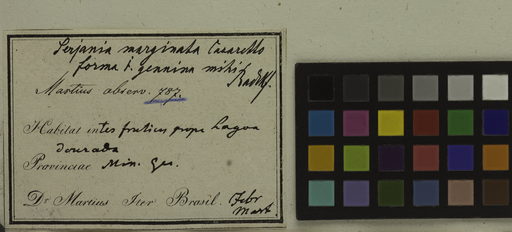 Serjania marginata Casaretto
forma 1. genuina mihi
Radlk.
Martius observ. 787.
Habitat inter frutices prope Lagoa
dourada
Provinciae Min. Ger.
Dr Martius Iter Brasil. Febr
Mart.